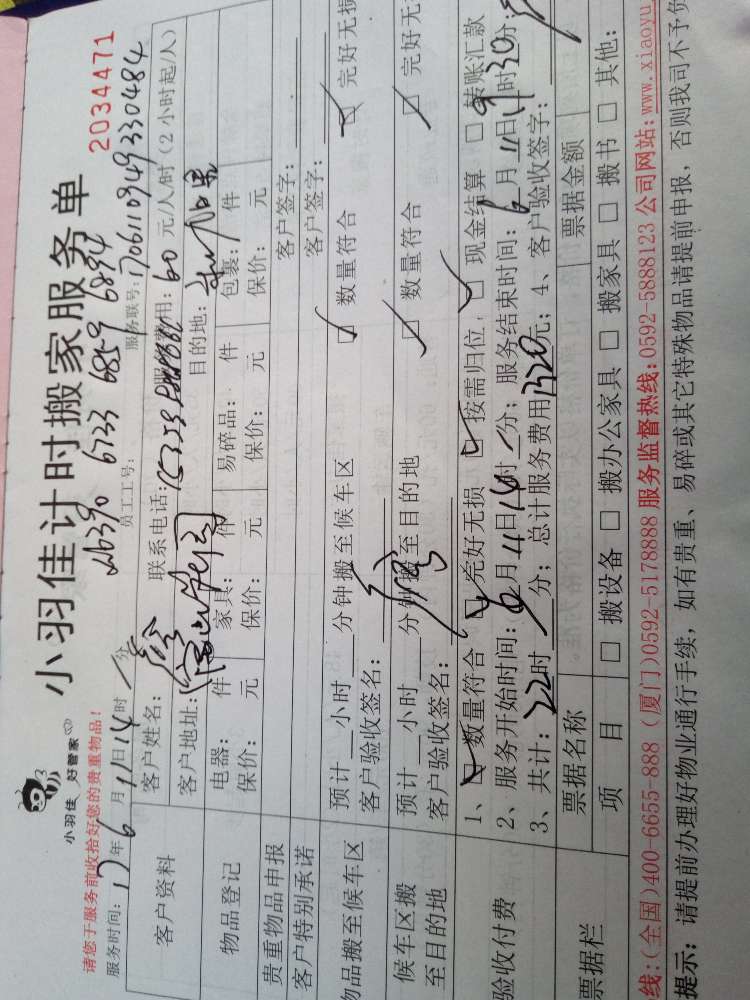 小羽佳 好管家
小羽佳计时搬家服务单
2034471
请您于服务前收拾好您的贵重物品！
员工工号: 26390 6733 6859 6894
服务时间: 17年6月11日14时/分
服务联号: 1706110949330484
客户资料
客户姓名:
联系电话:
服务费用: 60元/人/时(2小时起/人)
客户地址:
目的地:
物品登记
电器: 件
家具: 件
易碎品: 件
包裹: 件
保价: 元
保价: 元
保价: 元
保价: 元
贵重物品申报
客户签字:
客户特别承诺
客户签字:
物品搬至候车区
预计__小时__分钟搬至候车区
☑ 数量符合
☑ 完好无损
客户验收签名:
候车区搬至目的地
预计__小时__分钟搬至目的地
☑ 数量符合
☑ 完好无损
客户验收签名:
验收付费
1、☑ 数量符合 ☑ 完好无损 ☑ 按需归位, ☑ 现金结算 □ 转账汇款
2、服务开始时间: 6月11日14时/分; 服务结束时间: 6月11日19时30分;
3、共计: 22时/分; 总计服务费用1320元; 4、客户验收签字:
票据栏
票据名称
票据金额
项目
□ 搬设备 □ 搬办公家具 □ 搬家具 □ 搬书 □ 其他:
线:(全国)400-6655-888 (厦门)0592-5178888 服务监督热线:0592-5888123 公司网站:www.xiaoyu
提示: 请提前办理好物业通行手续, 如有贵重、易碎或其它特殊物品请提前申报, 否则我司不予负